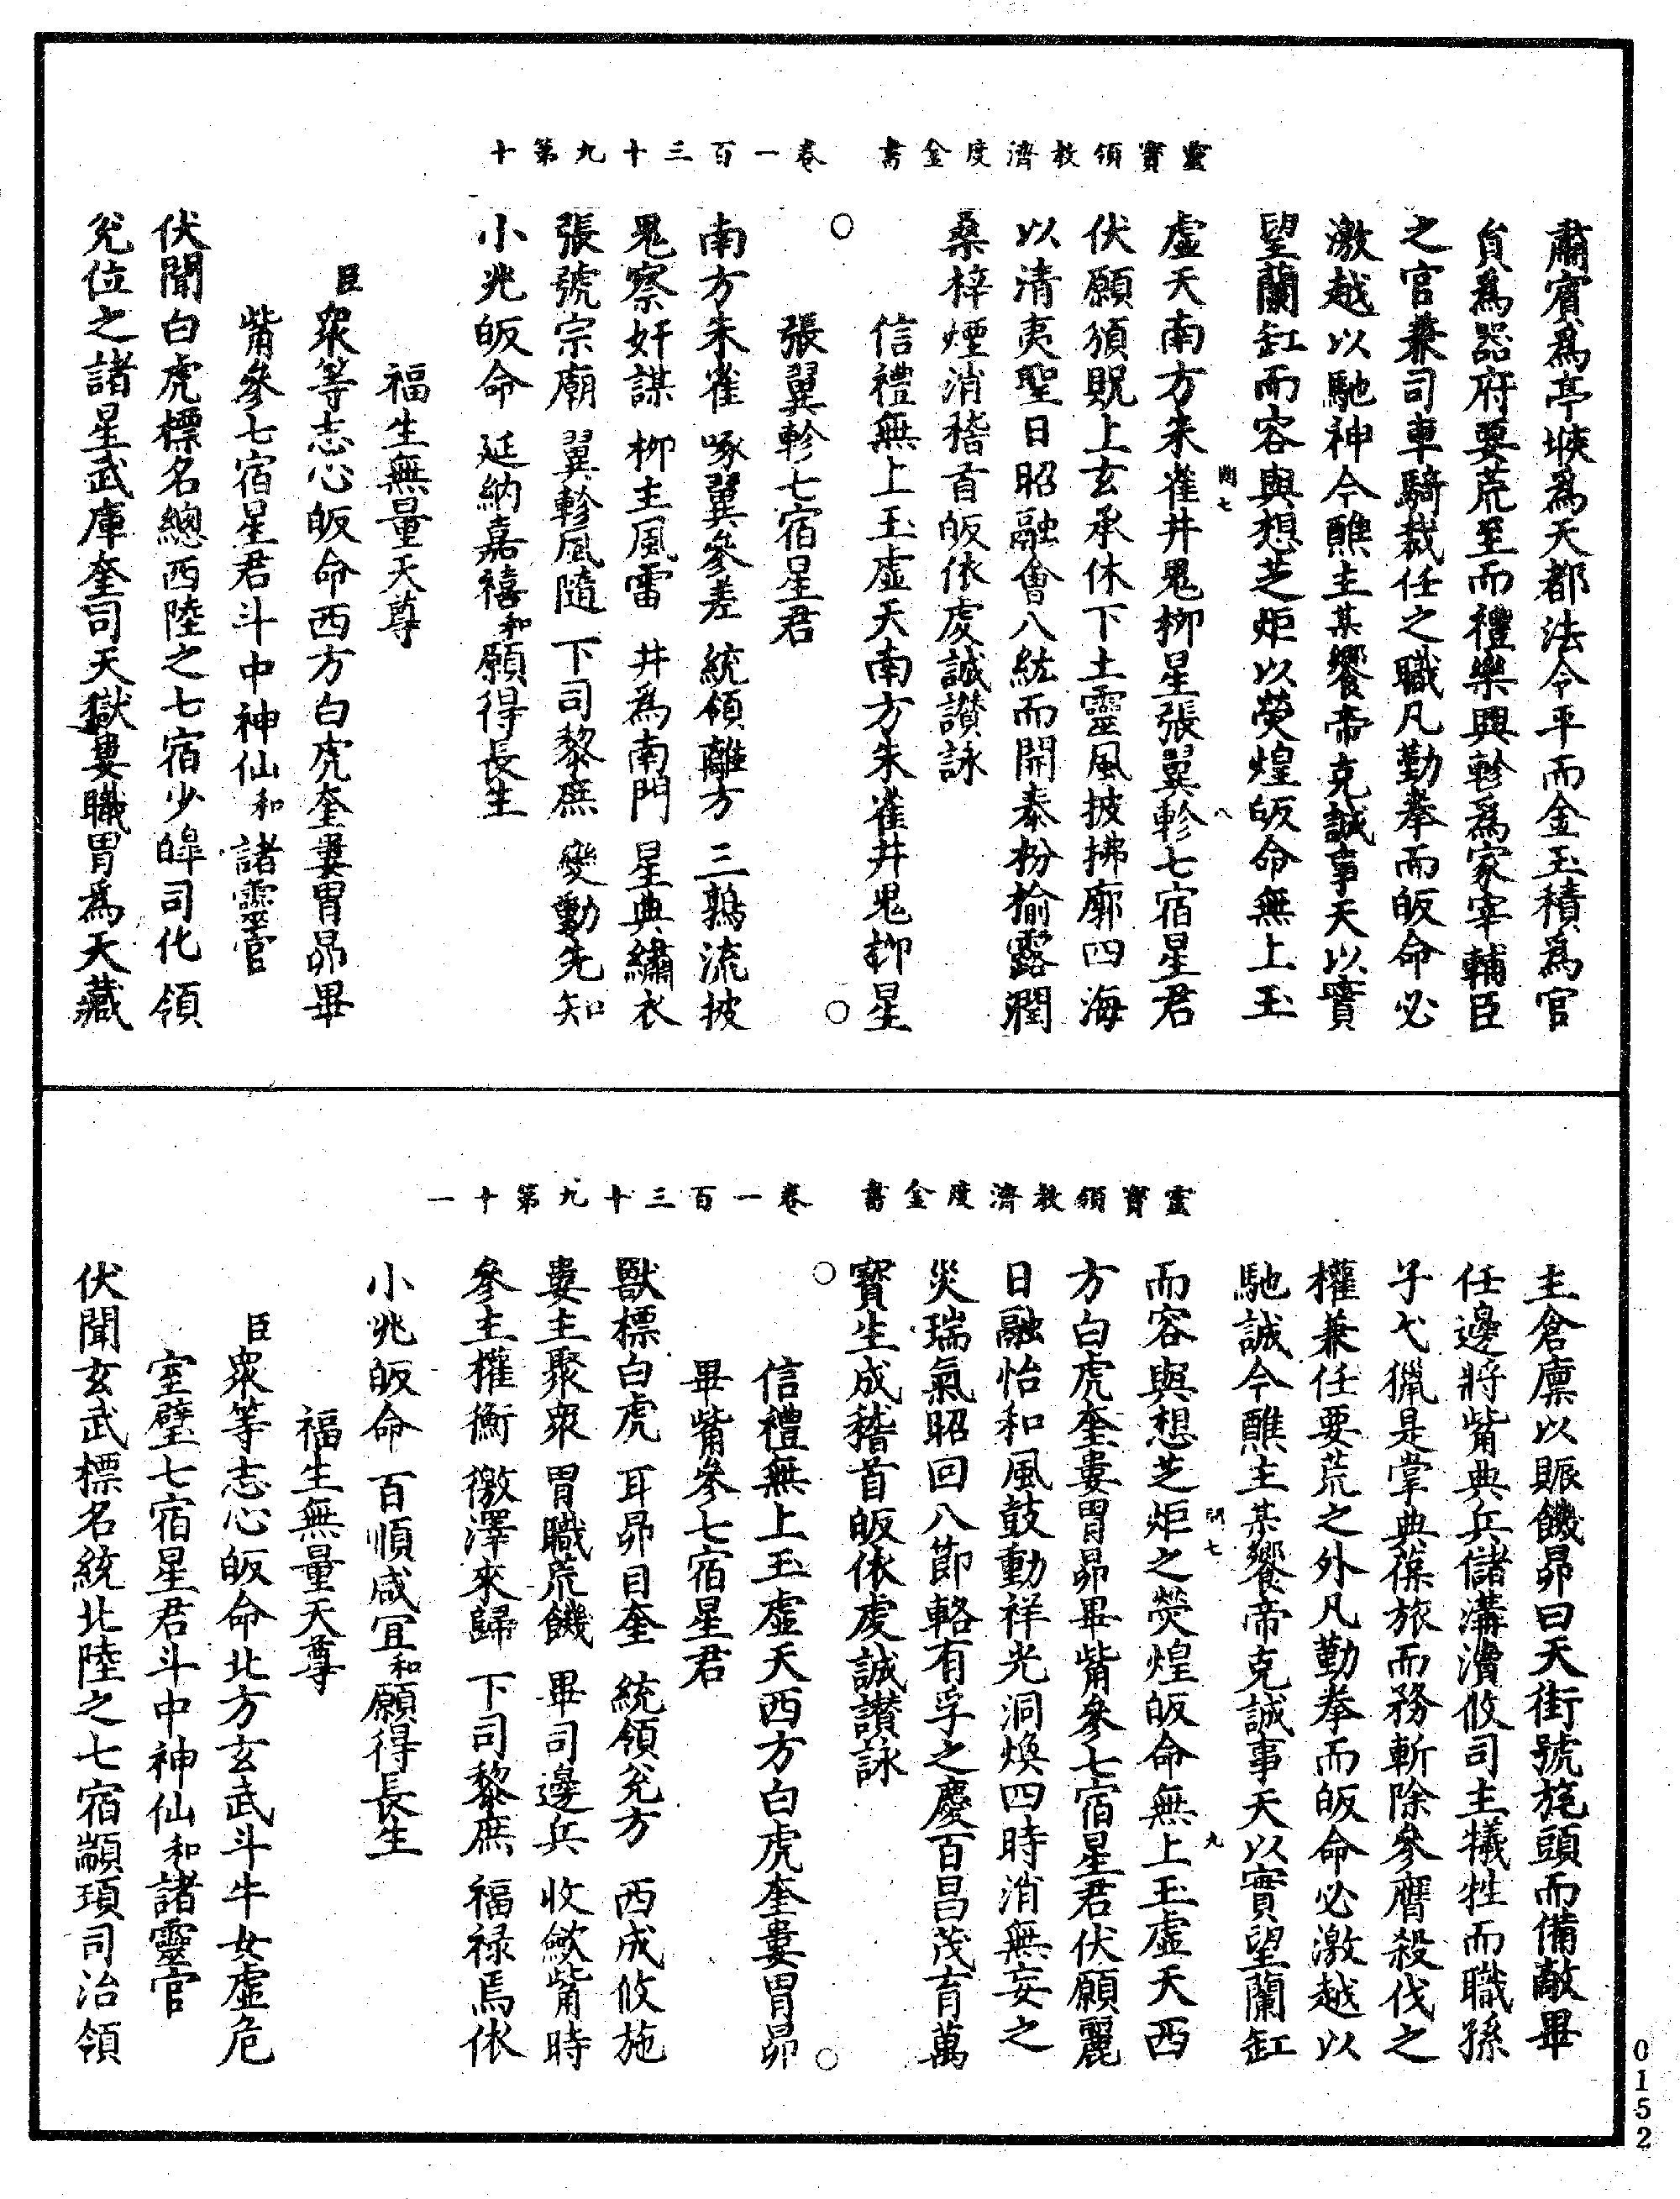 靈寶領教濟度金書 卷一百三十九第十
肅賓為亭堠為天都法令平而金玉積為官
負為器府要荒至而禮樂興軫為家宰輔臣
之官兼司車騎裁任之職凡勤拳而皈命必
激越以馳神今醮主某饗帝克誠事天以實
望蘭缸而容與想芝炬以熒煌皈命無上玉
虛天南方朱雀井鬼柳星張翼軫七宿星君
伏願頒貺上玄承休下土靈風披拂廓四海
以清夷聖日昭融會八紘而開泰枌榆露潤
桑梓煙消稽首皈依虔誠讚詠
信禮無上玉虛天南方朱雀井鬼柳星
張翼軫七宿星君
○南方朱雀 啄翼參差 統領離方 三鶉流披
鬼察奸謀 柳主風雷 井為南門 星典繡衣
張號宗廟 翼軫風隨 下司黎庶 變動先知
小兆皈命 延納嘉禧和願得長生○
福生無量天尊
臣眾等志心皈命西方白虎奎婁胃昴畢
觜參七宿星君斗中神仙和諸靈官
伏聞白虎標名總西陸之七宿少皞司化領
兌位之諸星武庫奎司天獄婁職胃為天藏
靈寶領教濟度金書 卷一百三十九第十一
主倉廩以賑饑昴曰天街號旄頭而備敵畢
任邊將觜典兵儲溝瀆攸司主犧牲而職孫
子弋獵是掌典葆旅而務斬除參膺殺伐之
權兼任要荒之外凡勤拳而皈命必激越以
馳誠今醮主某饗帝克誠事天以實望蘭缸
而容與想芝炬之熒煌皈命無上玉虛天西
方白虎奎婁胃昴畢觜參七宿星君伏願麗
日融怡和風鼓動祥光洞煥四時消無妄之
災瑞氣昭回八節輅有孚之慶百昌茂育萬
寶生成稽首皈依虔誠讚詠
信禮無上玉虛天西方白虎奎婁胃昴
畢觜參七宿星君
○獸標白虎 耳昴目奎 統領兌方 西成攸施
婁主聚眾 胃職荒饑 畢司邊兵 收斂觜時
參主權衡 徼澤來歸 下司黎庶 福祿焉依
小兆皈命 百順咸宜和願得長生○
福生無量天尊
臣眾等志心皈命北方玄武斗牛女虛危
室壁七宿星君斗中神仙和諸靈官
伏聞玄武標名統北陸之七宿顓頊司治領
0152